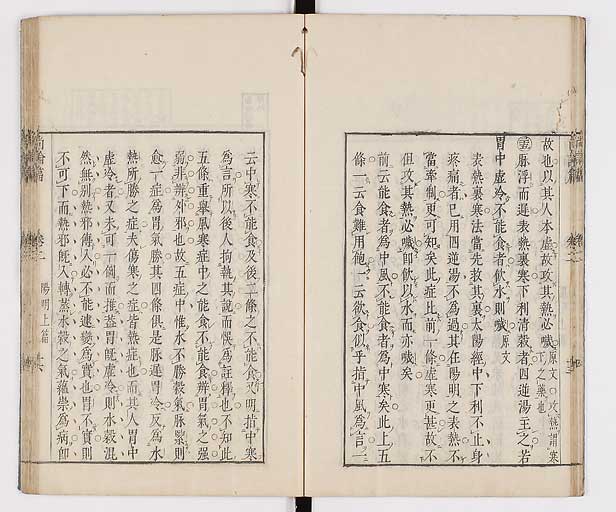 故也以其人本虛故攻其熱必噦原文〇攻熱謂寒下之藥也
㊂脉浮而遲表熱裏寒下利清穀者四逆湯主之若
胃中虛冷不能食者飲水則噦原文
表熱裏寒法當先救其裏太陽經中下利不止身
疼痛者已用四逆湯不爲過其在陽明之表熱不
當牽制更可知矣此症比前一條虛寒更甚故不
但攻其熱必噦卽飲以水而亦噦矣
前云能食者爲中風不能食者爲中寒矣此上五
條一云食難用飽一云欲食似乎指中風爲言一
云中寒不能食及後二條之不能食又明指中寒
爲言所以後人拘執其說而悞爲註釋也不知此
五條重舉風寒症中之能食不能食辨胃氣之强
弱非辨外邪也故五症中惟水不勝穀氣脉緊則
愈一症爲胃氣勝其四條俱是脉遲胃冷反爲水
熱所勝之症夫傷寒之症皆熱症也而其人胃中
虛冷者又未可一例而推蓋胃旣虛冷則水穀混
然無別熱邪傳入必不能遽變爲實也胃不實則
不可下而熱邪旣入轉蒸水穀之氣蘊崇爲病卽
尚論篇
卷二
陽明上篇